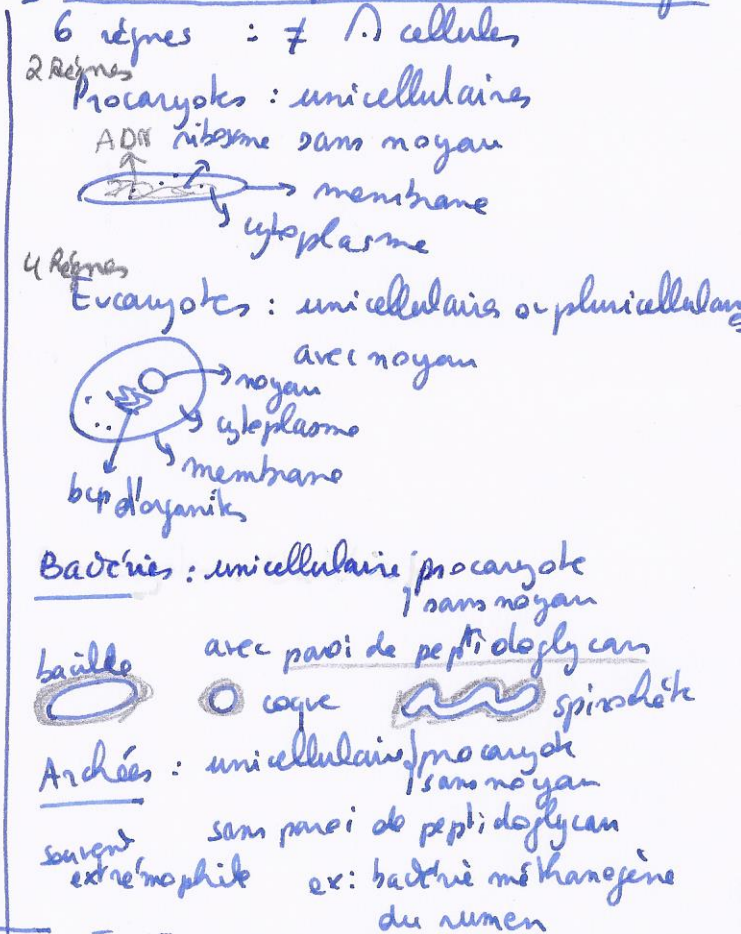 6 règnes : ≠ cellules
2 Règnes
Procaryotes : unicellulaires
ADN ribosome sans noyau
membrane
cytoplasme
4 Règnes
Eucaryotes : unicellulaires ou pluricellulaires
avec noyau
noyau
cytoplasme
membrane
bcp d'organites
Bactéries : unicellulaire / procaryote
sans noyau
avec paroi de peptidoglycans
bacille
coque
spirochète
Archées : unicellulaire / procaryote
sans noyau
sans paroi de peptidoglycan
souvent
extrêmophile ex : bactérie méthanogène
du rumen